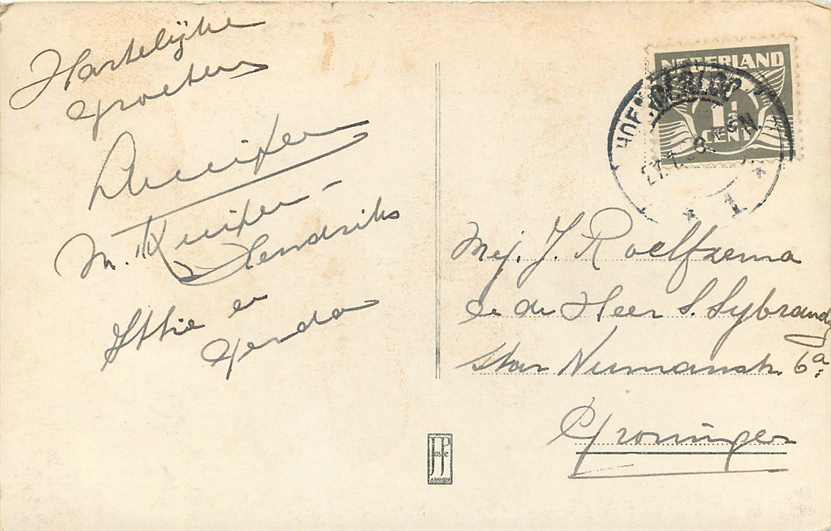 Hartelijke
groeten
M. Kuiper-
Hendriks
Ittie en
Gerda
NEDERLAND
1½
CENT
HOENDERLOO
1
Mej. J. Roelfzema
de Heer S. Sybrandy
Star Numanstr. 6a
Groningen
JP